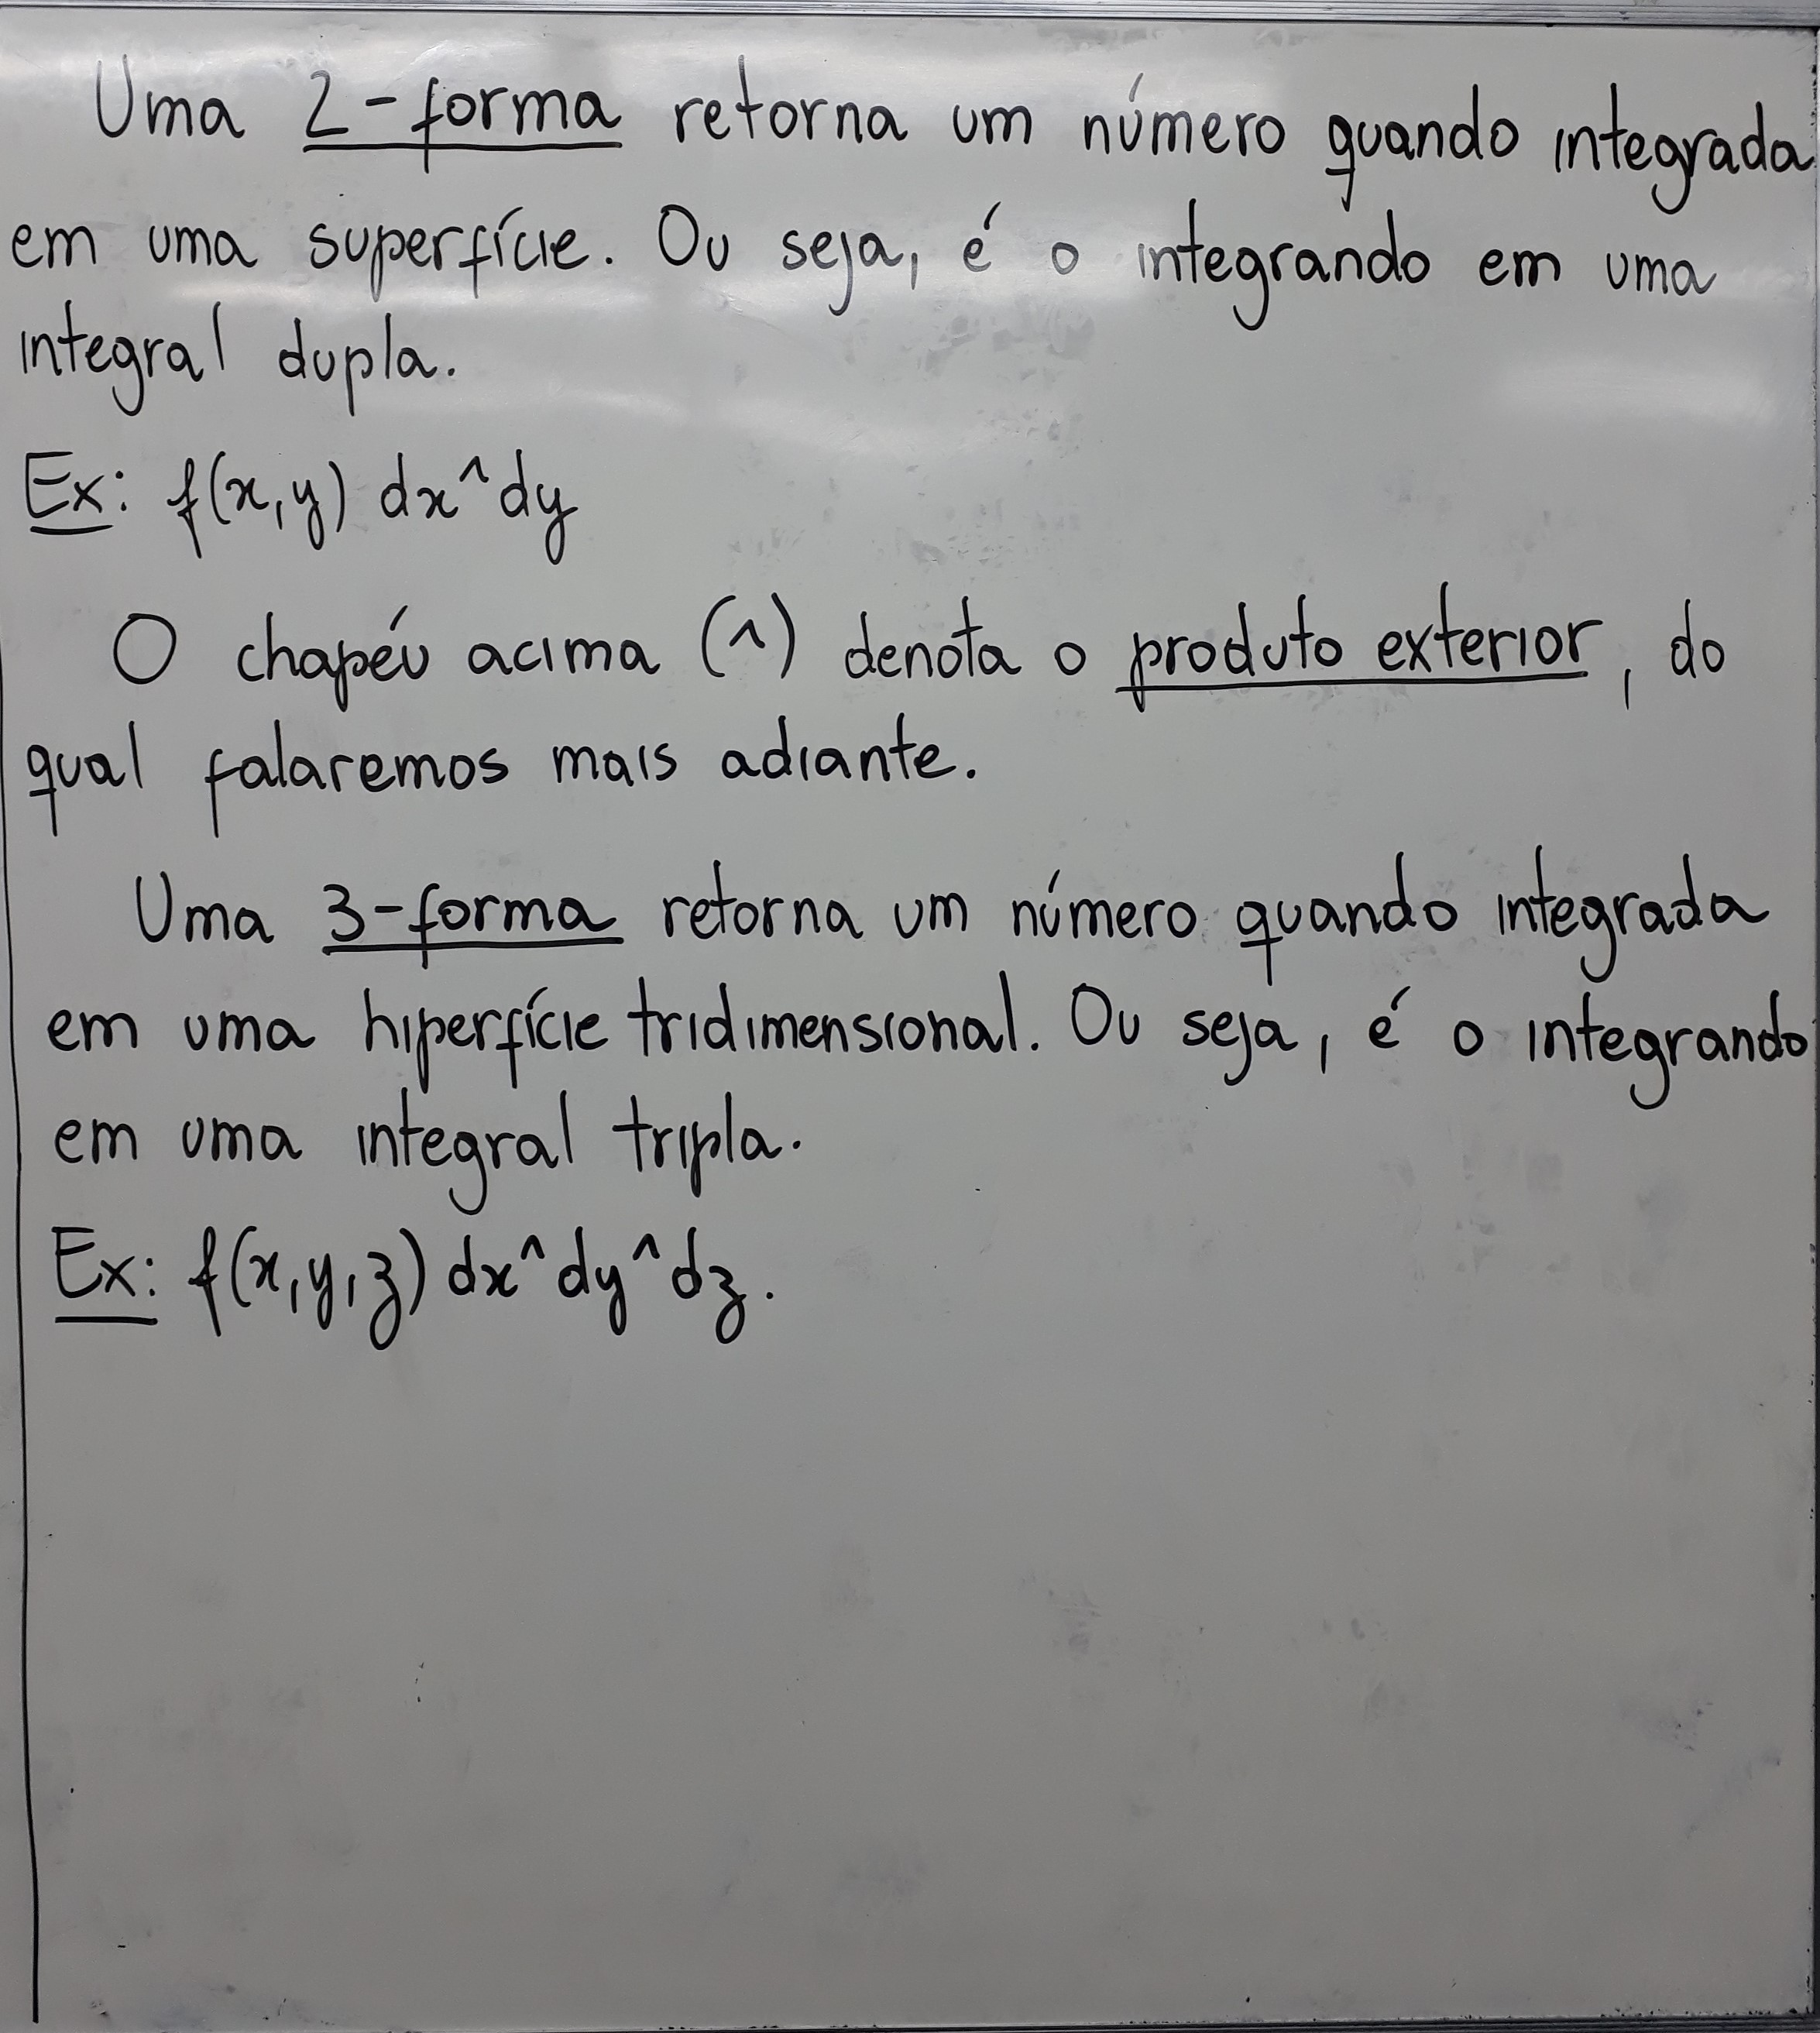 Uma 2-forma retorna um número quando integrada
em uma superfície. Ou seja, é o integrando em uma
integral dupla.
Ex: f(x,y) dx^dy
O chapéu acima (^) denota o produto exterior, do
qual falaremos mais adiante.
Uma 3-forma retorna um número quando integrada
em uma hiperfície tridimensional. Ou seja, é o integrando
em uma integral tripla.
Ex: f(x,y,z) dx^dy^dz.